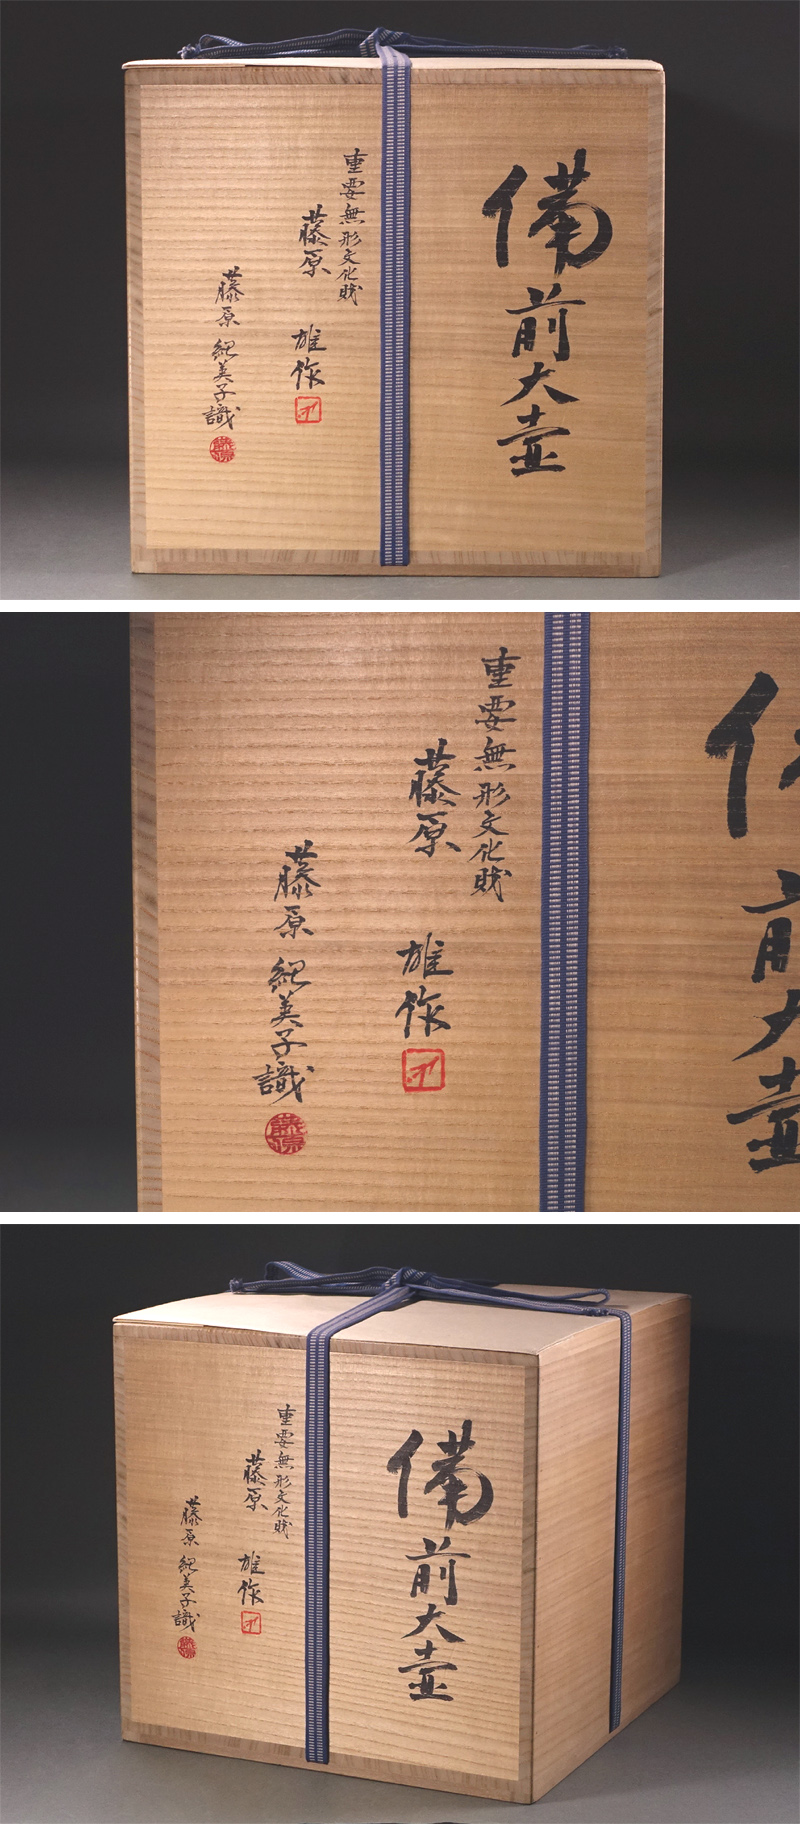 備前大壷
重要無形文化財
藤原 雄作
藤原 紀美子識
藤原
重要無形文化財
藤原 雄作
藤原 紀美子識
藤原
備前大壷
重要無形文化財
藤原 雄作
藤原 紀美子識
藤原